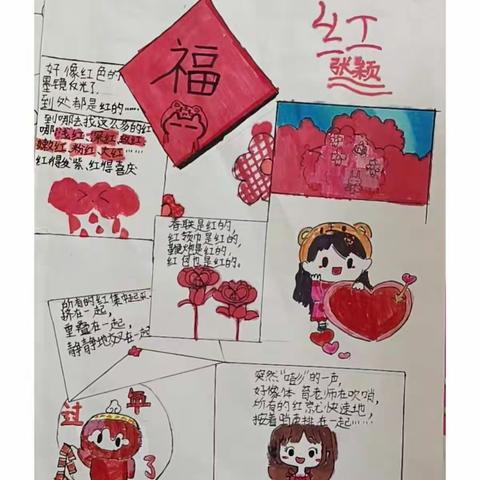 红
张颖
福
好像红色的
墨镜发光了.
到处都是红的……
到哪去找这么多的红
呢浅红、深红、
嫩红、粉红、大红……
红得发紫、红得喜庆
春联是红的,
红领巾是红的,
鞭炮是红的,
红包也是红的。
所有的红集中起来
挤在一起,
重叠在一起,
静静地
在一起
突然“哨
”的一声,
好像体育老师在吹哨,
所有的红
快速地
按着哨声排在一起……!
过年
了